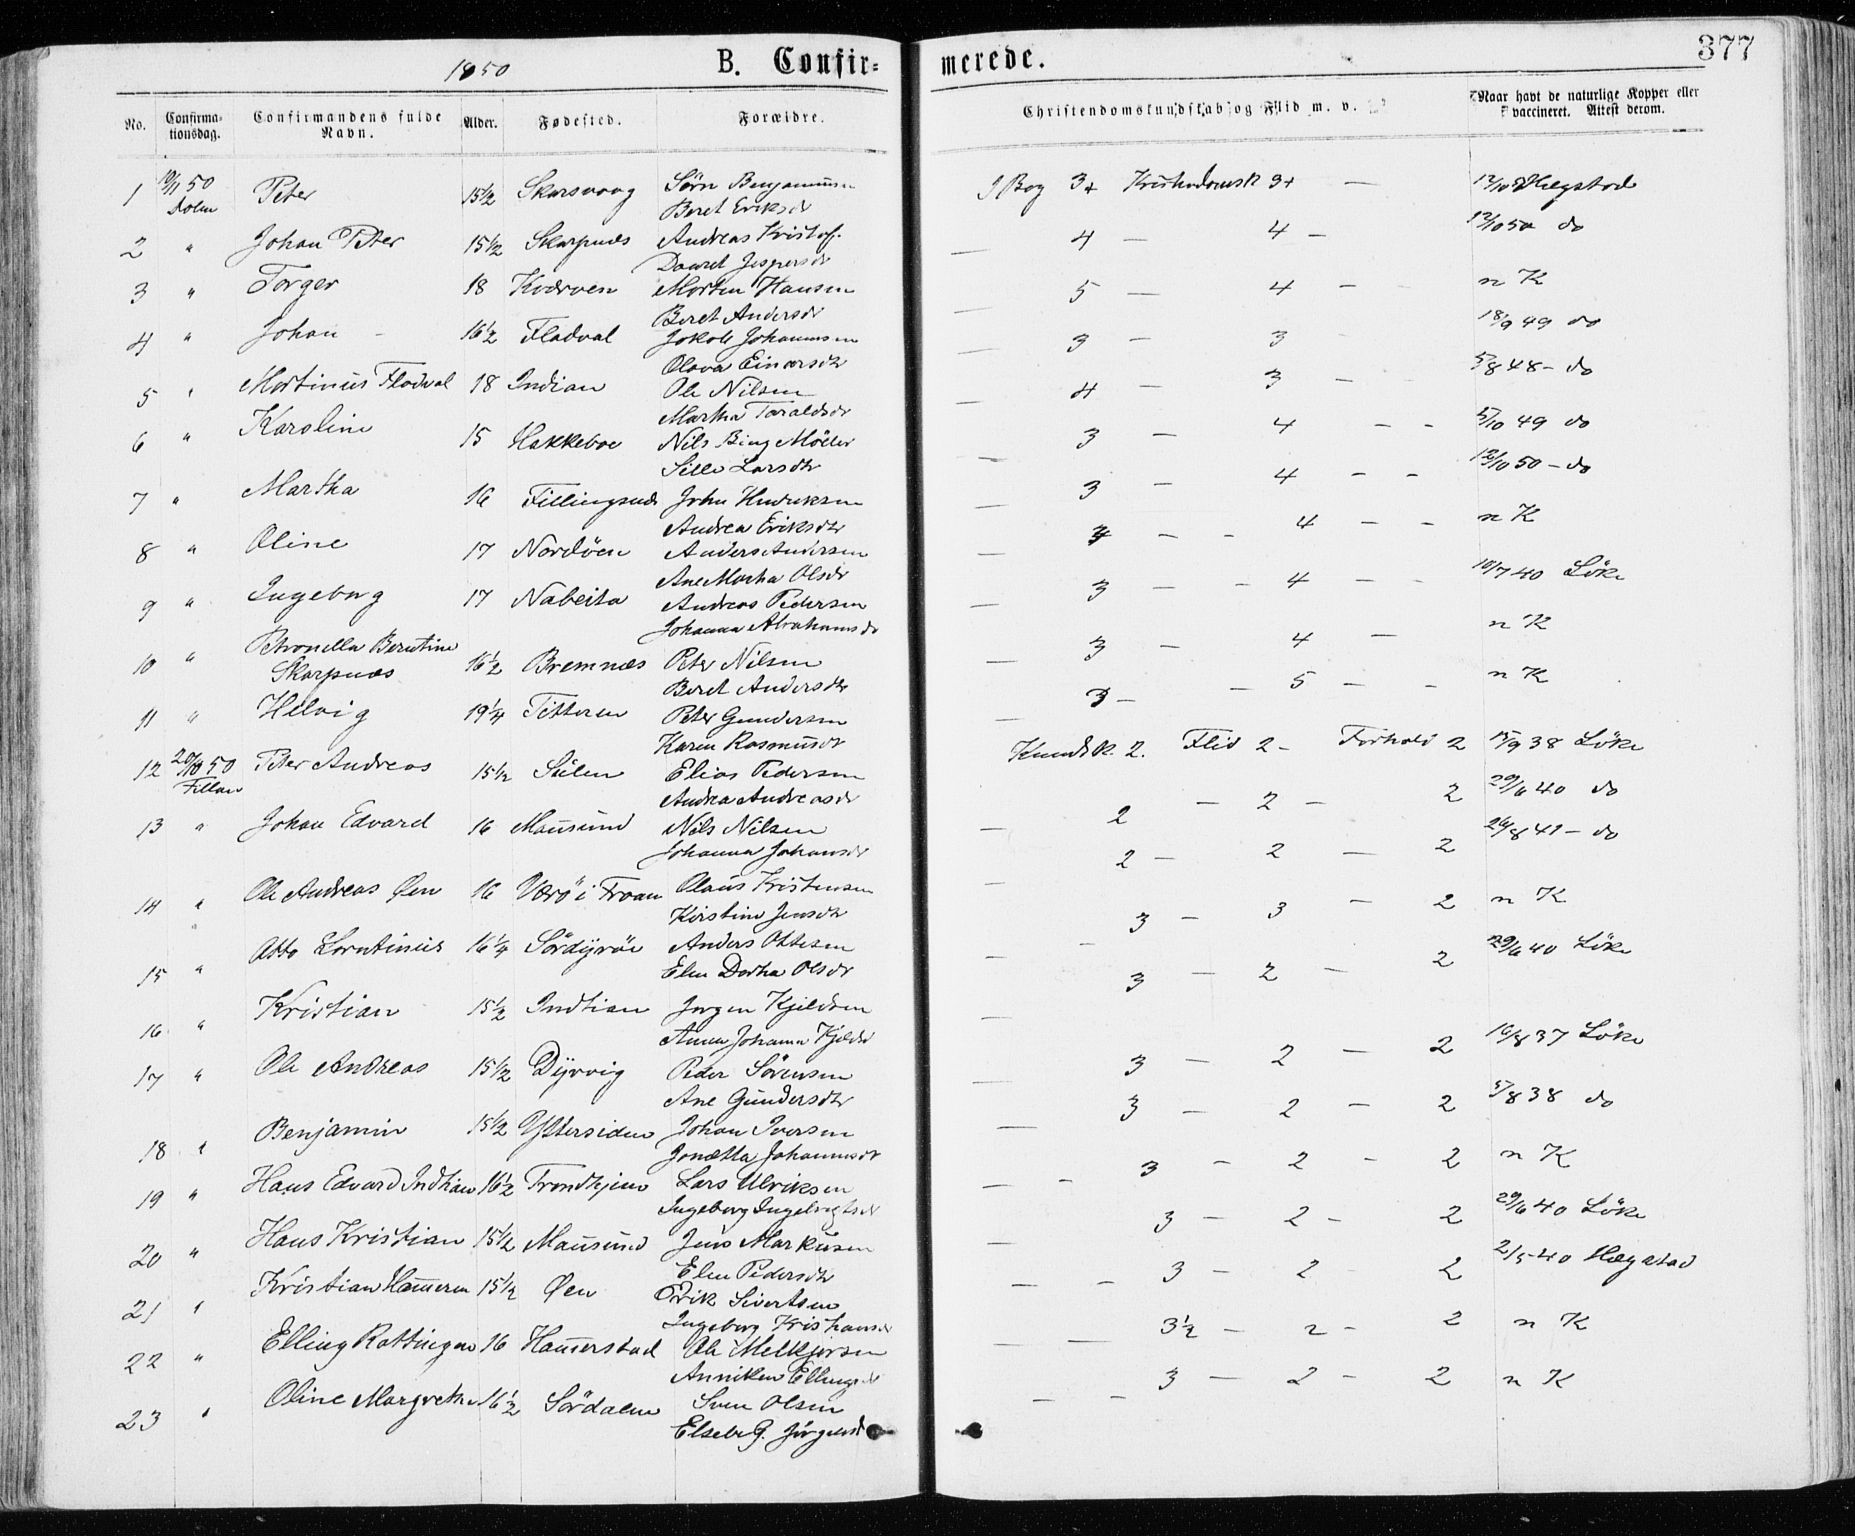 1850
B. Confirmerede.
377
No. Confirmationsdag. Confirmandens fulde Navn. Alder. Fødested. Forældre. Christendomskundskab og Flid m. v. Naar havt de naturlige Kopper eller vaccineret. Attest derom.
1 50 Peter 15½ Skarsvaag Sørn Benjaminsn I Bog 3+ Kristendomsk 3+ — Hegstad
Dolm Beret Eriksdr
2 " Johan Peter 15½ Skarpnæs Andreas Kristof. — 4 — 4 — 12/10 50 do
Dorret Jespersdr
3 " Torger 18 Kværven Morten Hansen — 5 — 4 — n K
Beret Andersdr
4 " Johan 16½ Fladval Jakob Johannsen — 3 — 3 18/9 49 do
Olava Einarsdtr
5 " Martinus Fladval 18 Indian Ole Nilsen — 4 — 3 — 5/8 48 - do
Martha Taraldsdr
6 " Karoline 15 Hakkeboe Nils Bing Møller — 3 — 4 — 5/10 49 do
Sille Larsdtr
7 " Martha 16 Fillingsnds John Henriksen — 3 — 4 — 12/10 50 - do
Andrea Eriksdtr
8 " Oline 17 Nordöen Anders Andersen — — 4 — n K
Ane Martha Olsdr
9 " Ingeborg 17 Nabeita Andreas Pedersen — 3 — 4 — 10/7 40 Löke
Johanna Abrahamsdr
10 " Petronella Berntine 16½ Bremnæs Peter Nilsen — 3 — 4 — n K
Skarpnæs Beret Andersdtr
11 " Helvig 19¼ Titteren Peter Gundersen — 3 — 5 — n K
Karen Rasmusdr
12 20/10 50 Peter Andreas 15½ Sulen Elias Pedersen Kundsk. 2. Flid 2 - Forhold 2 15/9 38 Löke
Fillan Andrea Andreasdr
13 " Johan Edvard 16 Mausund Nils Nilsen — 2 — 2 — 2 29/6 40 do
Johanna Johansdr
14 " Ole Andreas Øen 16 Værö i Froan Olaus Kristensen — 2 — 2 — 2 26/8 41 - do
Kirstine Jensdtr
15 " Otto Lorntinius 16¼ Sördyröi Anders Ottesen — 3 — 3 — 2 n K
Elen Dortha Olsdr
16 " Kristian 15½ Indtian Jørgen Kjeldsen — 3 — 2 — 2 29/6 40 Löke
Anna Johanna Kjeldsd
17 " Ole Andreas 15½ Dyrvig Peder Sörensen — 3 — 2 — 2 16/8 37 Löke
Ane Gundersdtr
18 " Benjamin 15½ Yttersiden Johan Iversen — 3 — 2 — 2 5/8 38 do
Jonetta Johannsdr
19 " Hans Edvard Indhian 16½ Trondhjem Lars Ulriksen — 3 — 2 — 2 n K
Ingeborg Ingebrigtsdr
20 " Hans Kristian 15½ Mausund Jens Markusen — 3 — 2 — 2 29/6 40 Löke
Elen Pedersdtr
21 " Kristian Hammeren 15½ Øen Erik Sivertsen — 3 — 2 2 2/5 40 Hægstad
Ingeborg Kristiansdr
22 " Elling Rottingen 16 Hammerstad Ole Melkjorsen — 3½ — 2 — 2 n K
Anniken Ellingsdr
23 " Oline Margrethe 16½ Sördalen Sven Olsen — 3 — 2 — 2 n K
Elsebe G. Jörgensd